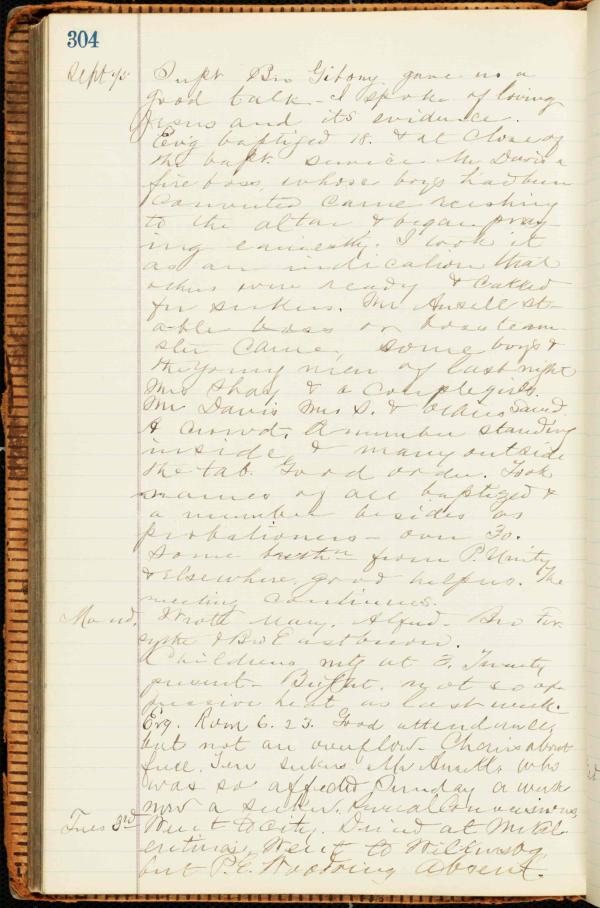 304
Sept 1st Supt Bro Gibony gave us a
good talk - I spoke of loving
Jesus and its evidence.
Evg baptized 18. & at close of
the bapt. service Mr Davis a
fire boss, whose boys had been
converted came rushing
to the altar & began pray-
ing earnestly. I took it
as an indication that
others were ready & called
for seekers. Mr Ansell st-
able boss or boss team-
ster came, some boys &
the young men of last night
Mrs Shay & a couple girls.
Mr Davis Mrs S. & others saved.
A crowd. A number standing
inside & many outside
the tab. Good order. Took
names of all baptized &
a number besides as
probationers - over 30.
Some from P. Unity
& elsewhere, good helpers. The
meeting continues.
Mo nd. Wrote Mary, Alfred - Bro
& Bro Eastburn.
Childrens mtg at 7. Twenty
present - not so op-
pressive heat as last week.
Evg. Rom 6.23. Good attendance,
but not an overflow - Chairs about
full. Few seekers. Mr who
was so affected Sunday a week
now a seeker. Several conversions,
Tues 3rd Went to City. Dined at
Went to
but P.E. Wodring absent.